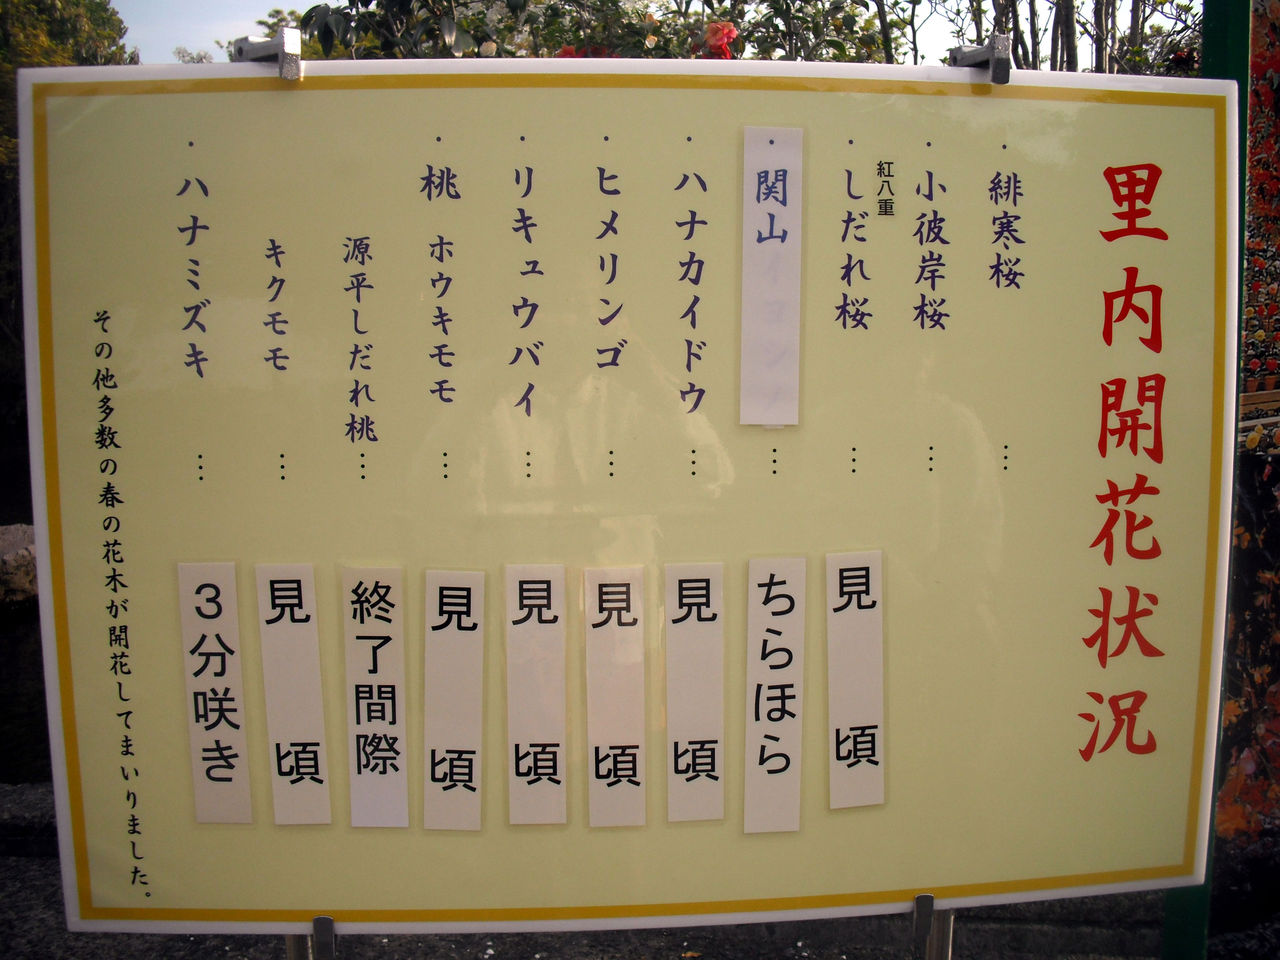 里内開花状況
・緋寒桜 …
・小彼岸桜 …
紅八重
・しだれ桜 … 見頃
・関山 … ちらほら
・ハナカイドウ … 見頃
・ヒメリンゴ … 見頃
・リキュウバイ … 見頃
・桃 ホウキモモ … 見頃
源平しだれ桃 … 終了間際
キクモモ … 見頃
・ハナミズキ … 3分咲き
その他多数の春の花木が開花してまいりました。